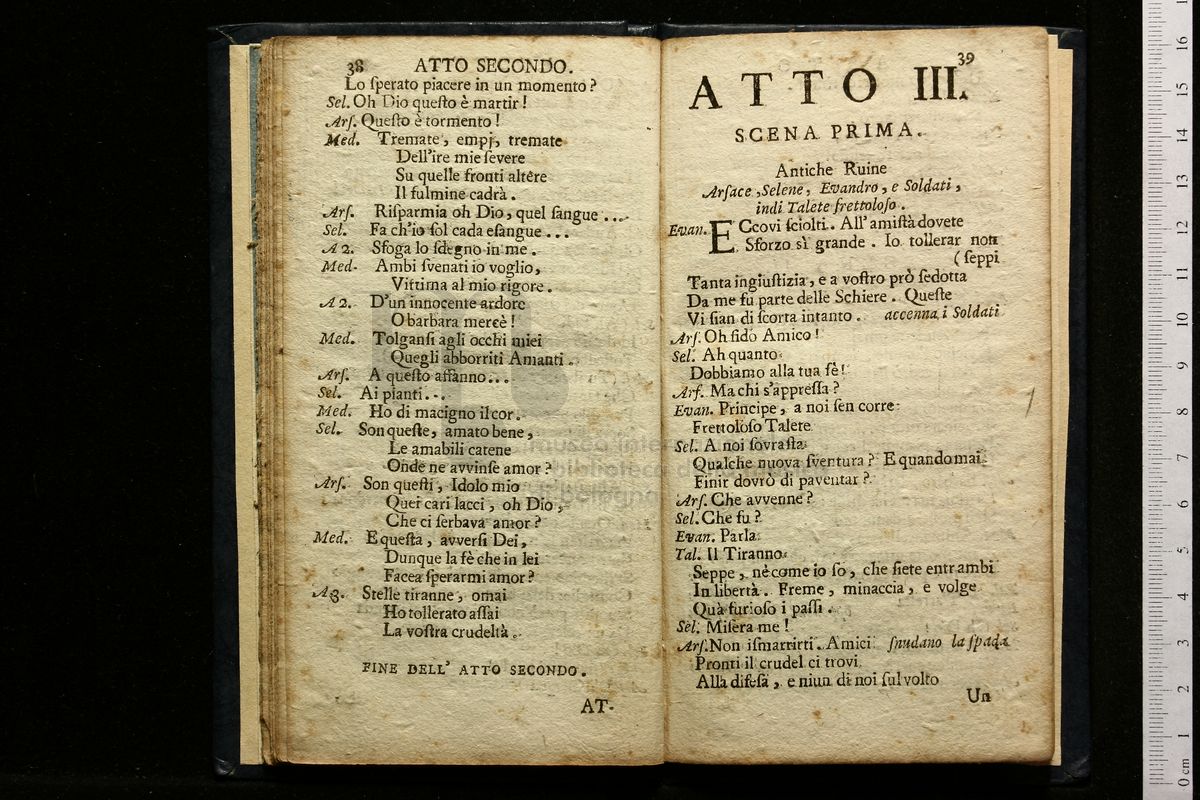 38 ATTO SECONDO.
Lo ſperato piacere in un momento?
Sel. Oh Dio queſto è martir!
Arſ. Queſto è tormento!
Med. Tremate, empj, tremate
Dell'ire mie ſevere
Su quelle fronti altere
Il fulmine cadrà.
Arſ. Riſparmia oh Dio, quel ſangue ...
Sel. Fa ch'io ſol cada eſangue ...
A 2. Sfoga lo ſdegno in me.
Med. Ambi ſvenati io voglio,
Vittima al mio rigore.
A 2. D'un innocente ardore
O barbara mercè!
Med. Tolganſi agli occhi miei
Quegli abborriti Amanti.
Arſ. A queſto affanno...
Sel. Ai pianti...
Med. Ho di macigno il cor.
Sel. Son queſte, amato bene,
Le amabili catene
Onde ne avvinſe amor?
Arſ. Son queſti, Idolo mio
Quei cari lacci, oh Dio,
Che ci ſerbava amor?
Med. E queſta, avverſi Dei,
Dunque la fè che in lei
Facea ſperarmi amor?
A 3. Stelle tiranne, omai
Ho tollerato aſſai
La voſtra crudeltà.
FINE DELL' ATTO SECONDO.
AT-
39
ATTO III.
SCENA PRIMA.
Antiche Ruine
Arſace, Selene, Evandro, e Soldati,
indi Talete frettoloſo.
Evan. ECcovi ſciolti. All'amiſtà dovete
Sforzo sì grande. Io tollerar non
(ſeppi
Tanta ingiuſtizia, e a voſtro prò ſedotta
Da me fu parte delle Schiere. Queſte
Vi ſian di ſcorta intanto. accenna i Soldati
Arſ. Oh fido Amico!
Sel. Ah quanto
Dobbiamo alla tua fè!
Arſ. Ma chi s'appreſſa?
Evan. Principe, a noi ſen corre
Frettoloſo Talete
Sel. A noi ſovraſta
Qualche nuova ſventura? E quando mai
Finir dovrò di paventar?
Arſ. Che avvenne?
Sel. Che fu?
Evan. Parla
Tal. Il Tiranno
Seppe, nè come io ſo, che ſiete entrambi
In libertà. Freme, minaccia, e volge
Quà furioſo i paſſi.
Sel. Miſera me!
Arſ. Non iſmarrirti. Amici ſnudano la ſpada
Pronti il crudel ci trovi
Alla difeſa, e niun di noi ſul volto
Un
museo
biblioteca
bologna
16
15
14
13
12
11
10
9
8
7
6
5
4
3
2
1
0 cm